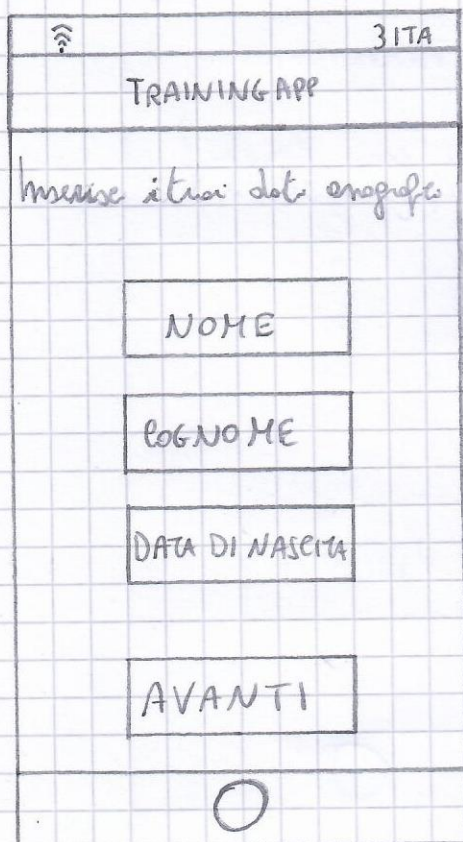 3 ITA
TRAINING APP
Inserisci i tuoi dati anagrafici
NOME
COGNOME
DATA DI NASCITA
AVANTI